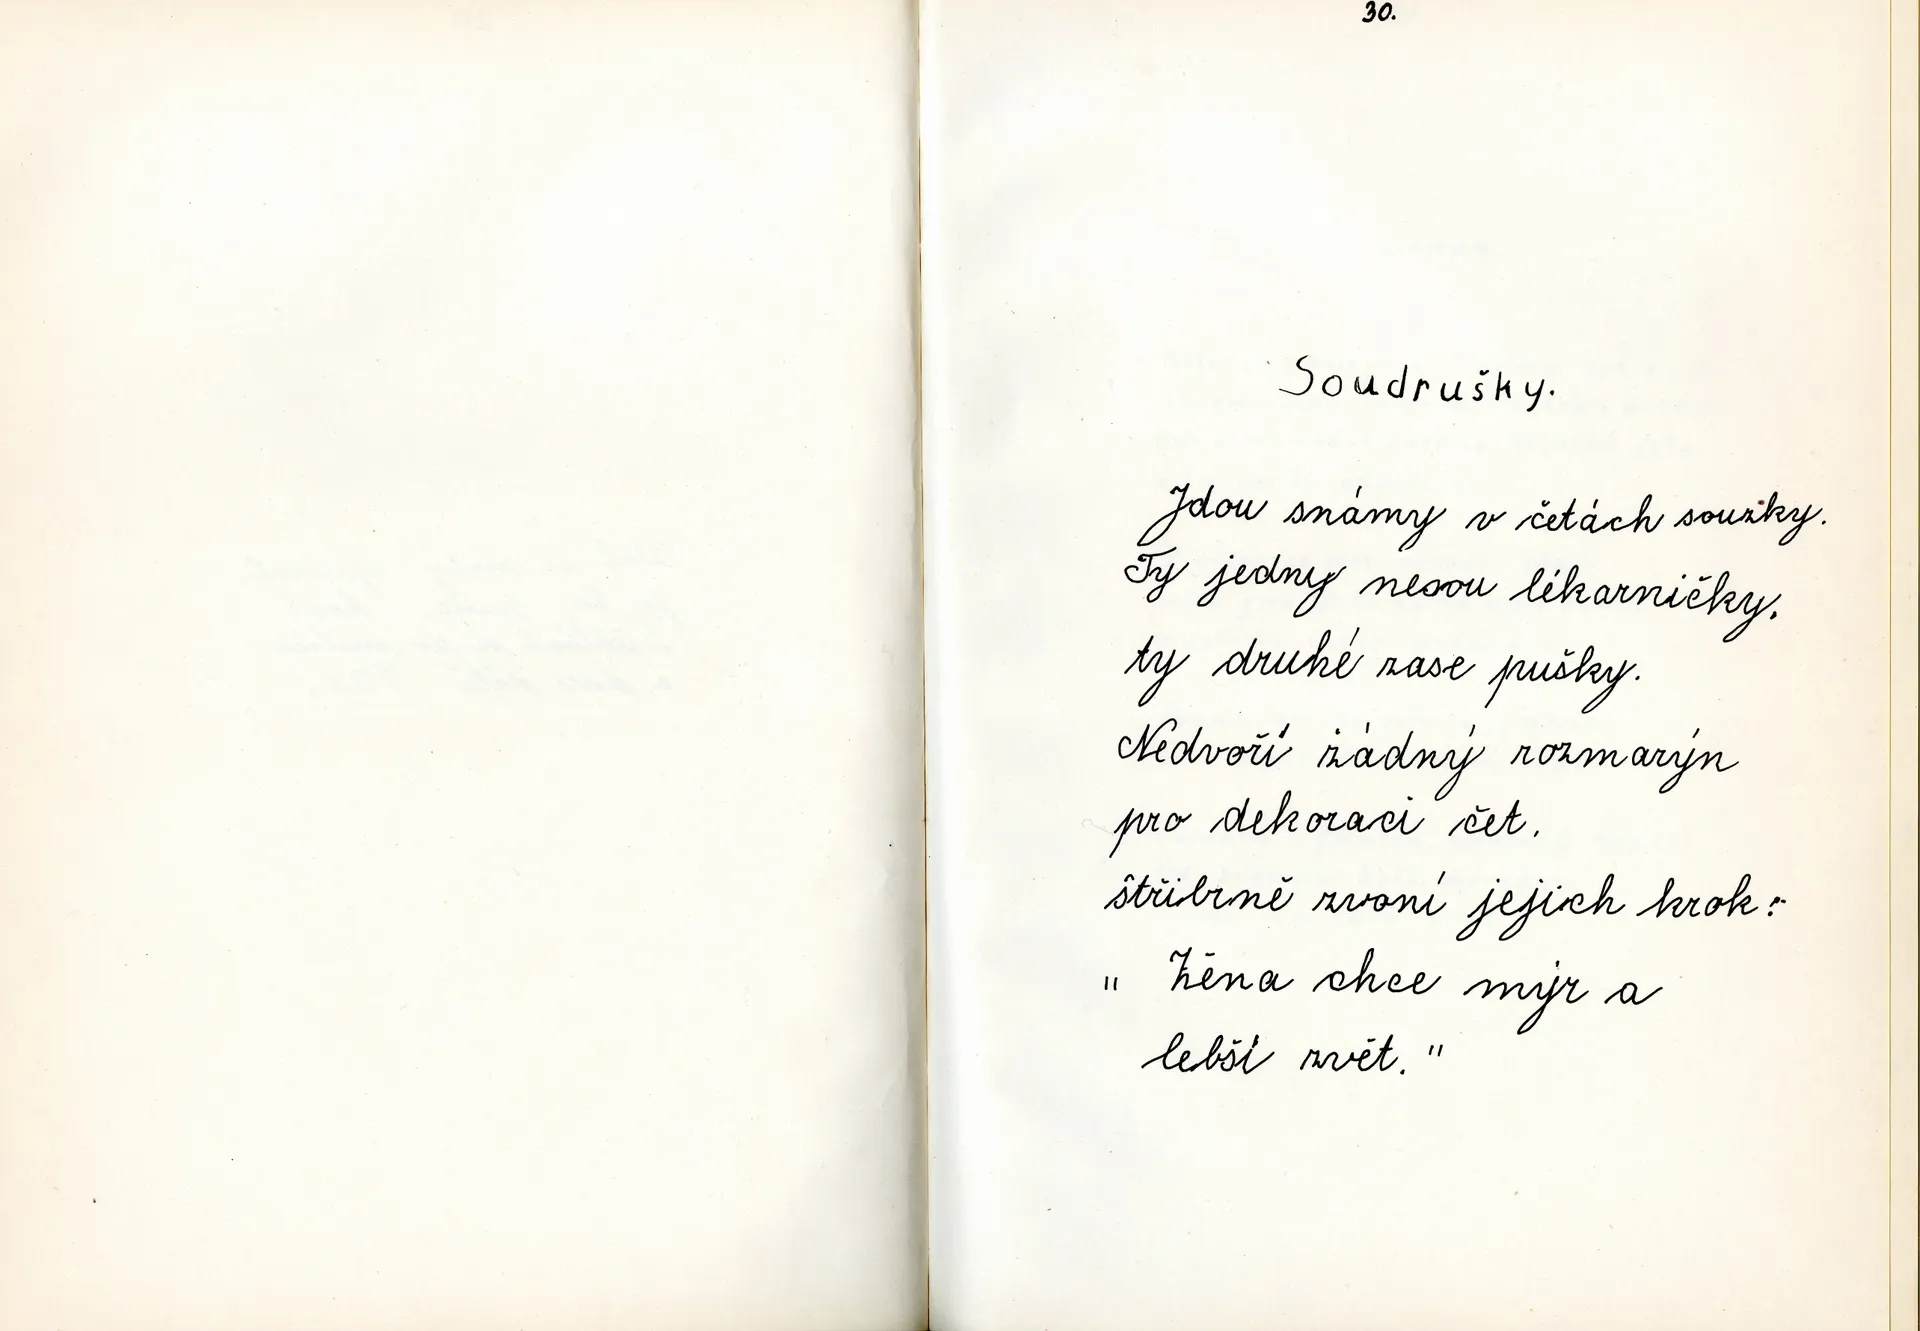 30.
Soudrušky.
Jdou snámy v četách soužky.
Ty jedny nesou lékarničky,
ty druhé zase pušky.
Nedvoří žádný rozmarýn
pro dekoraci čet,
štřibrně zvoní jejich krok:
" Žěna chce mýr a
lebší zvět."